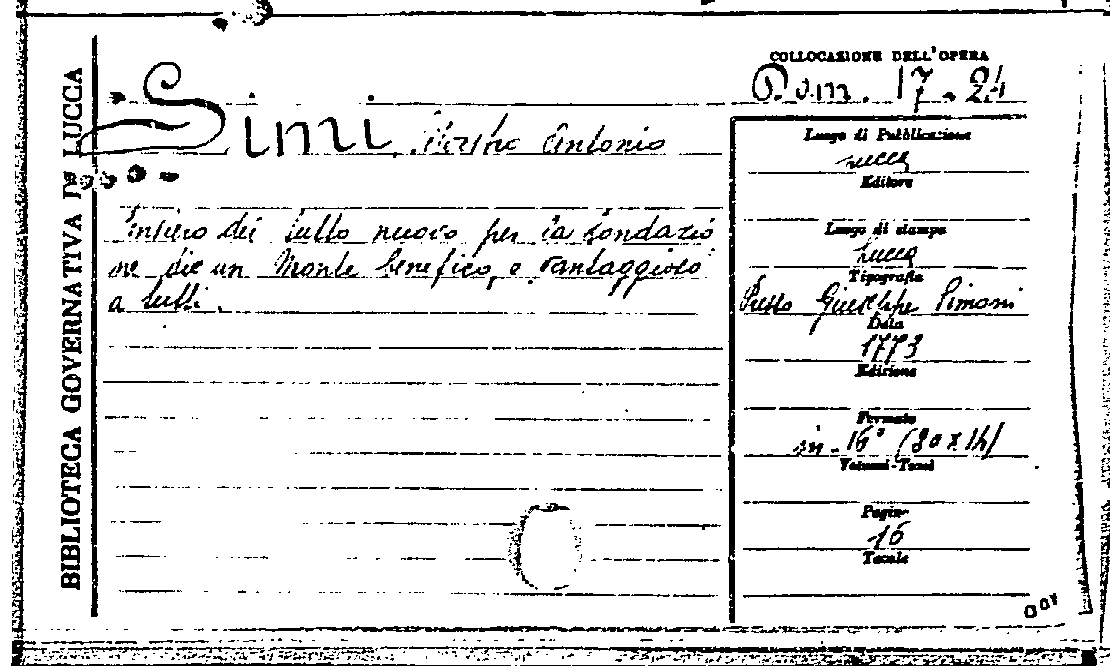 BIBLIOTECA GOVERNATIVA DI LUCCA
COLLOCAZIONE DELL'OPERA
17.24
Simi Antonio
del tutto nuovo per la fondazio
ne di un Monte benefico, e vantaggioso
a tutti.
Luogo di Pubblicazione
Lucca
Editore
Luogo di stampa
Lucca
Tipografia
Presso Giuseppe
Data
1773
Edizione
Formato
in-16° (20x14)
Volumi-Tomi
Pagine
16
Tavole